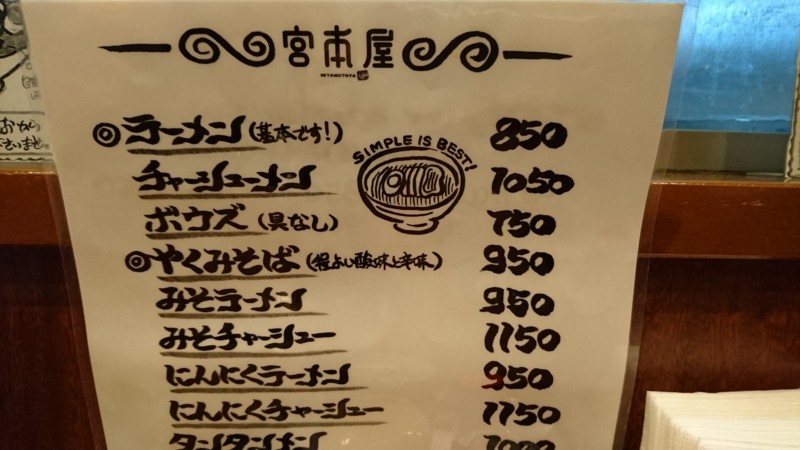 宮本屋
MIYAMOTOYA
◎ラーメン(基本です!) 850
SIMPLE IS BEST!
チャーシューメン 1050
ボウズ(具なし) 750
◎やくみそば(程よい酸味と辛味) 950
みそラーメン 950
みそチャーシュー 1150
にんにくラーメン 950
にんにくチャーシュー 1150
タンタンメン